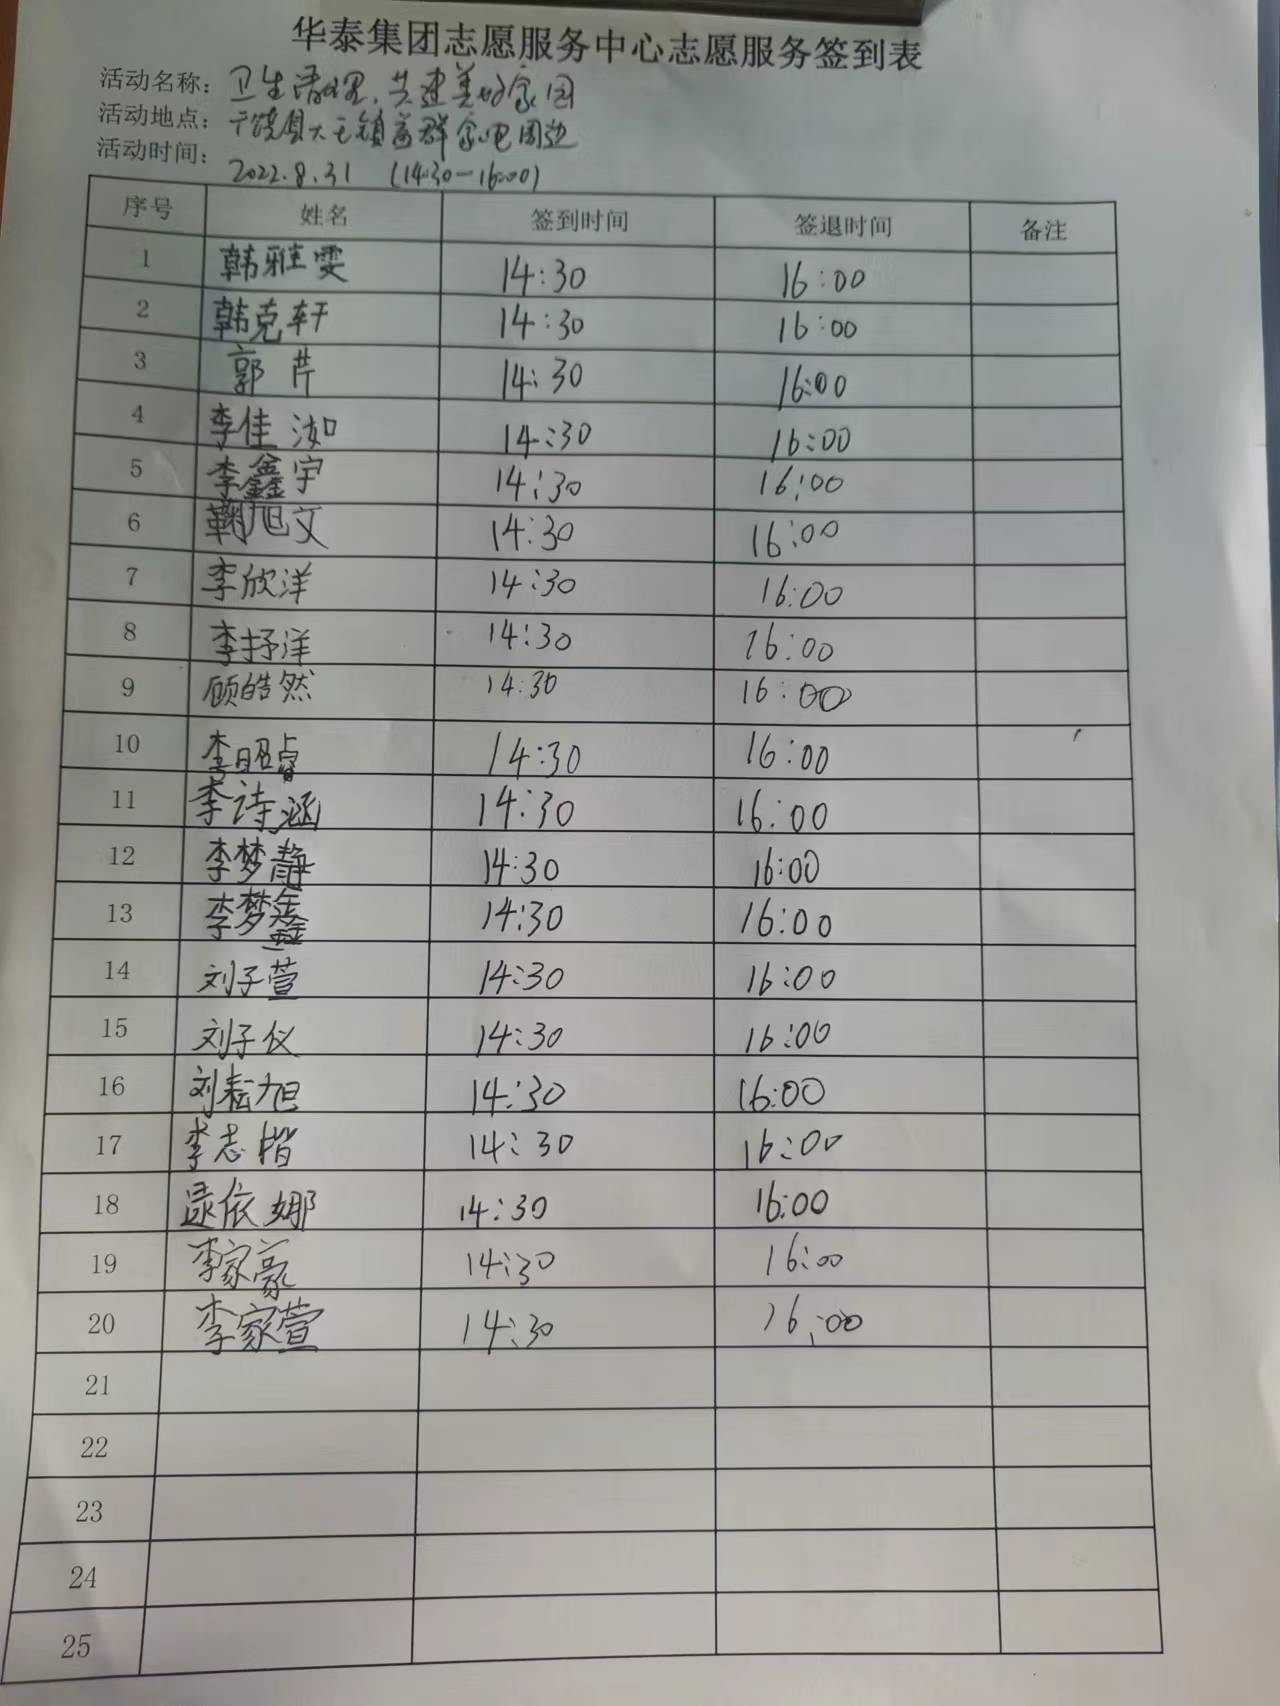 华泰集团志愿服务中心志愿服务签到表
活动名称：卫生清理，共建美好家园
活动地点：广饶县大王镇益群家电周边
活动时间：2022.8.31 (14:30—16:00)
序号 姓名 签到时间 签退时间 备注
1 韩雅雯 14:30 16:00
2 韩克轩 14:30 16:00
3 郭芹 14:30 16:00
4 李佳洳 14:30 16:00
5 李鑫宇 14:30 16:00
6 鞠旭文 14:30 16:00
7 李欣洋 14:30 16:00
8 李抒洋 14:30 16:00
9 顾皓然 14:30 16:00
10 李昭睿 14:30 16:00
11 李诗涵 14:30 16:00
12 李梦静 14:30 16:00
13 李梦鑫 14:30 16:00
14 刘子萱 14:30 16:00
15 刘子仪 14:30 16:00
16 刘耘旭 14:30 16:00
17 李志楷 14:30 16:00
18 逯依娜 14:30 16:00
19 李家豪 14:30 16:00
20 李家萱 14:30 16:00
21
22
23
24
25